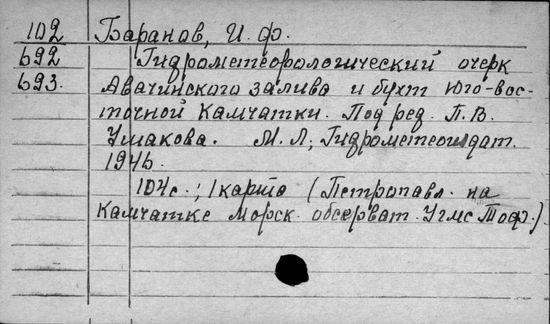 102 Баранов, И. Ф.
692 Гидрометеорологический очерк
693. Авачинского залива и бухт Юго-вос-
точной Камчатки. Под ред. П. В.
Ушакова. М. Л; Гидрометеоиздат.
1946.
104 с.; 1 карта (Петропавл. на
Камчатке Морск. обсерват. Угмс Тоф.)